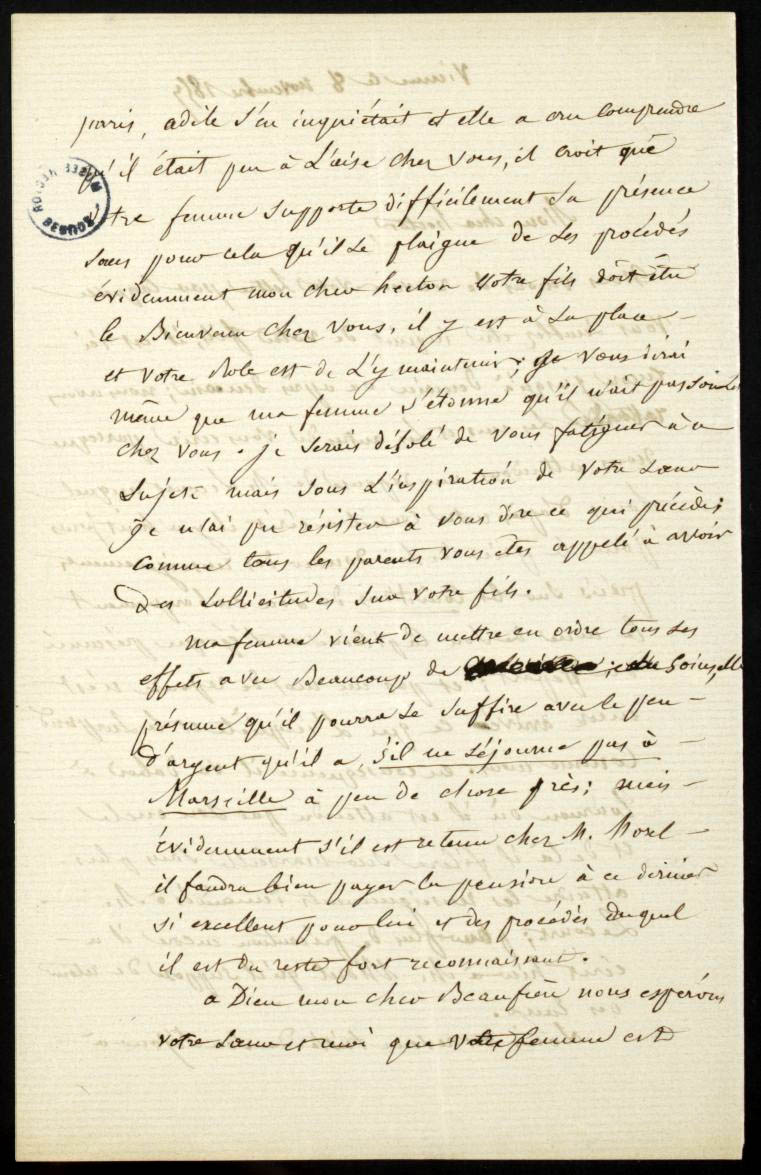 paris, adèle s'en inquiétait et elle a cru comprendre
qu'il était peu à L'aise chez vous, il croit que
votre femme supporte difficilement sa présence
sans pour cela qu'il se plaigne de ses procédés
évidemment mon cher hector votre fils doit être
le Bienvenu chez vous, il y est à sa place —
et votre Role est de L'y maintenir; je vous dirai
même que ma femme s'étonne qu'il n'ait pas
chez vous. je serais désolé de vous fatiguer à ce
sujet mais sous L'inspiration de votre sœur
je n'ai pu résister à vous dire ce qui précède;
comme tous les parents vous êtes appelé à avoir
des sollicitudes sur votre fils.
ma femme vient de mettre en ordre tous ses
effets avec Beaucoup de soins, elle
présume qu'il pourra se suffire avec le peu —
d'argent qu'il a, s'il ne séjourne pas à —
Marseille à peu de chose près; mais —
évidemment s'il est retenu chez M. Morel —
il faudra bien payer la pension à ce dernier
si excellent pour lui et des procédés duquel
il est du reste fort reconnaissant.
a Dieu mon cher Beaufrère nous espérons
votre sœur et moi que votre femme est
MUSÉE HECTOR BERLIOZ